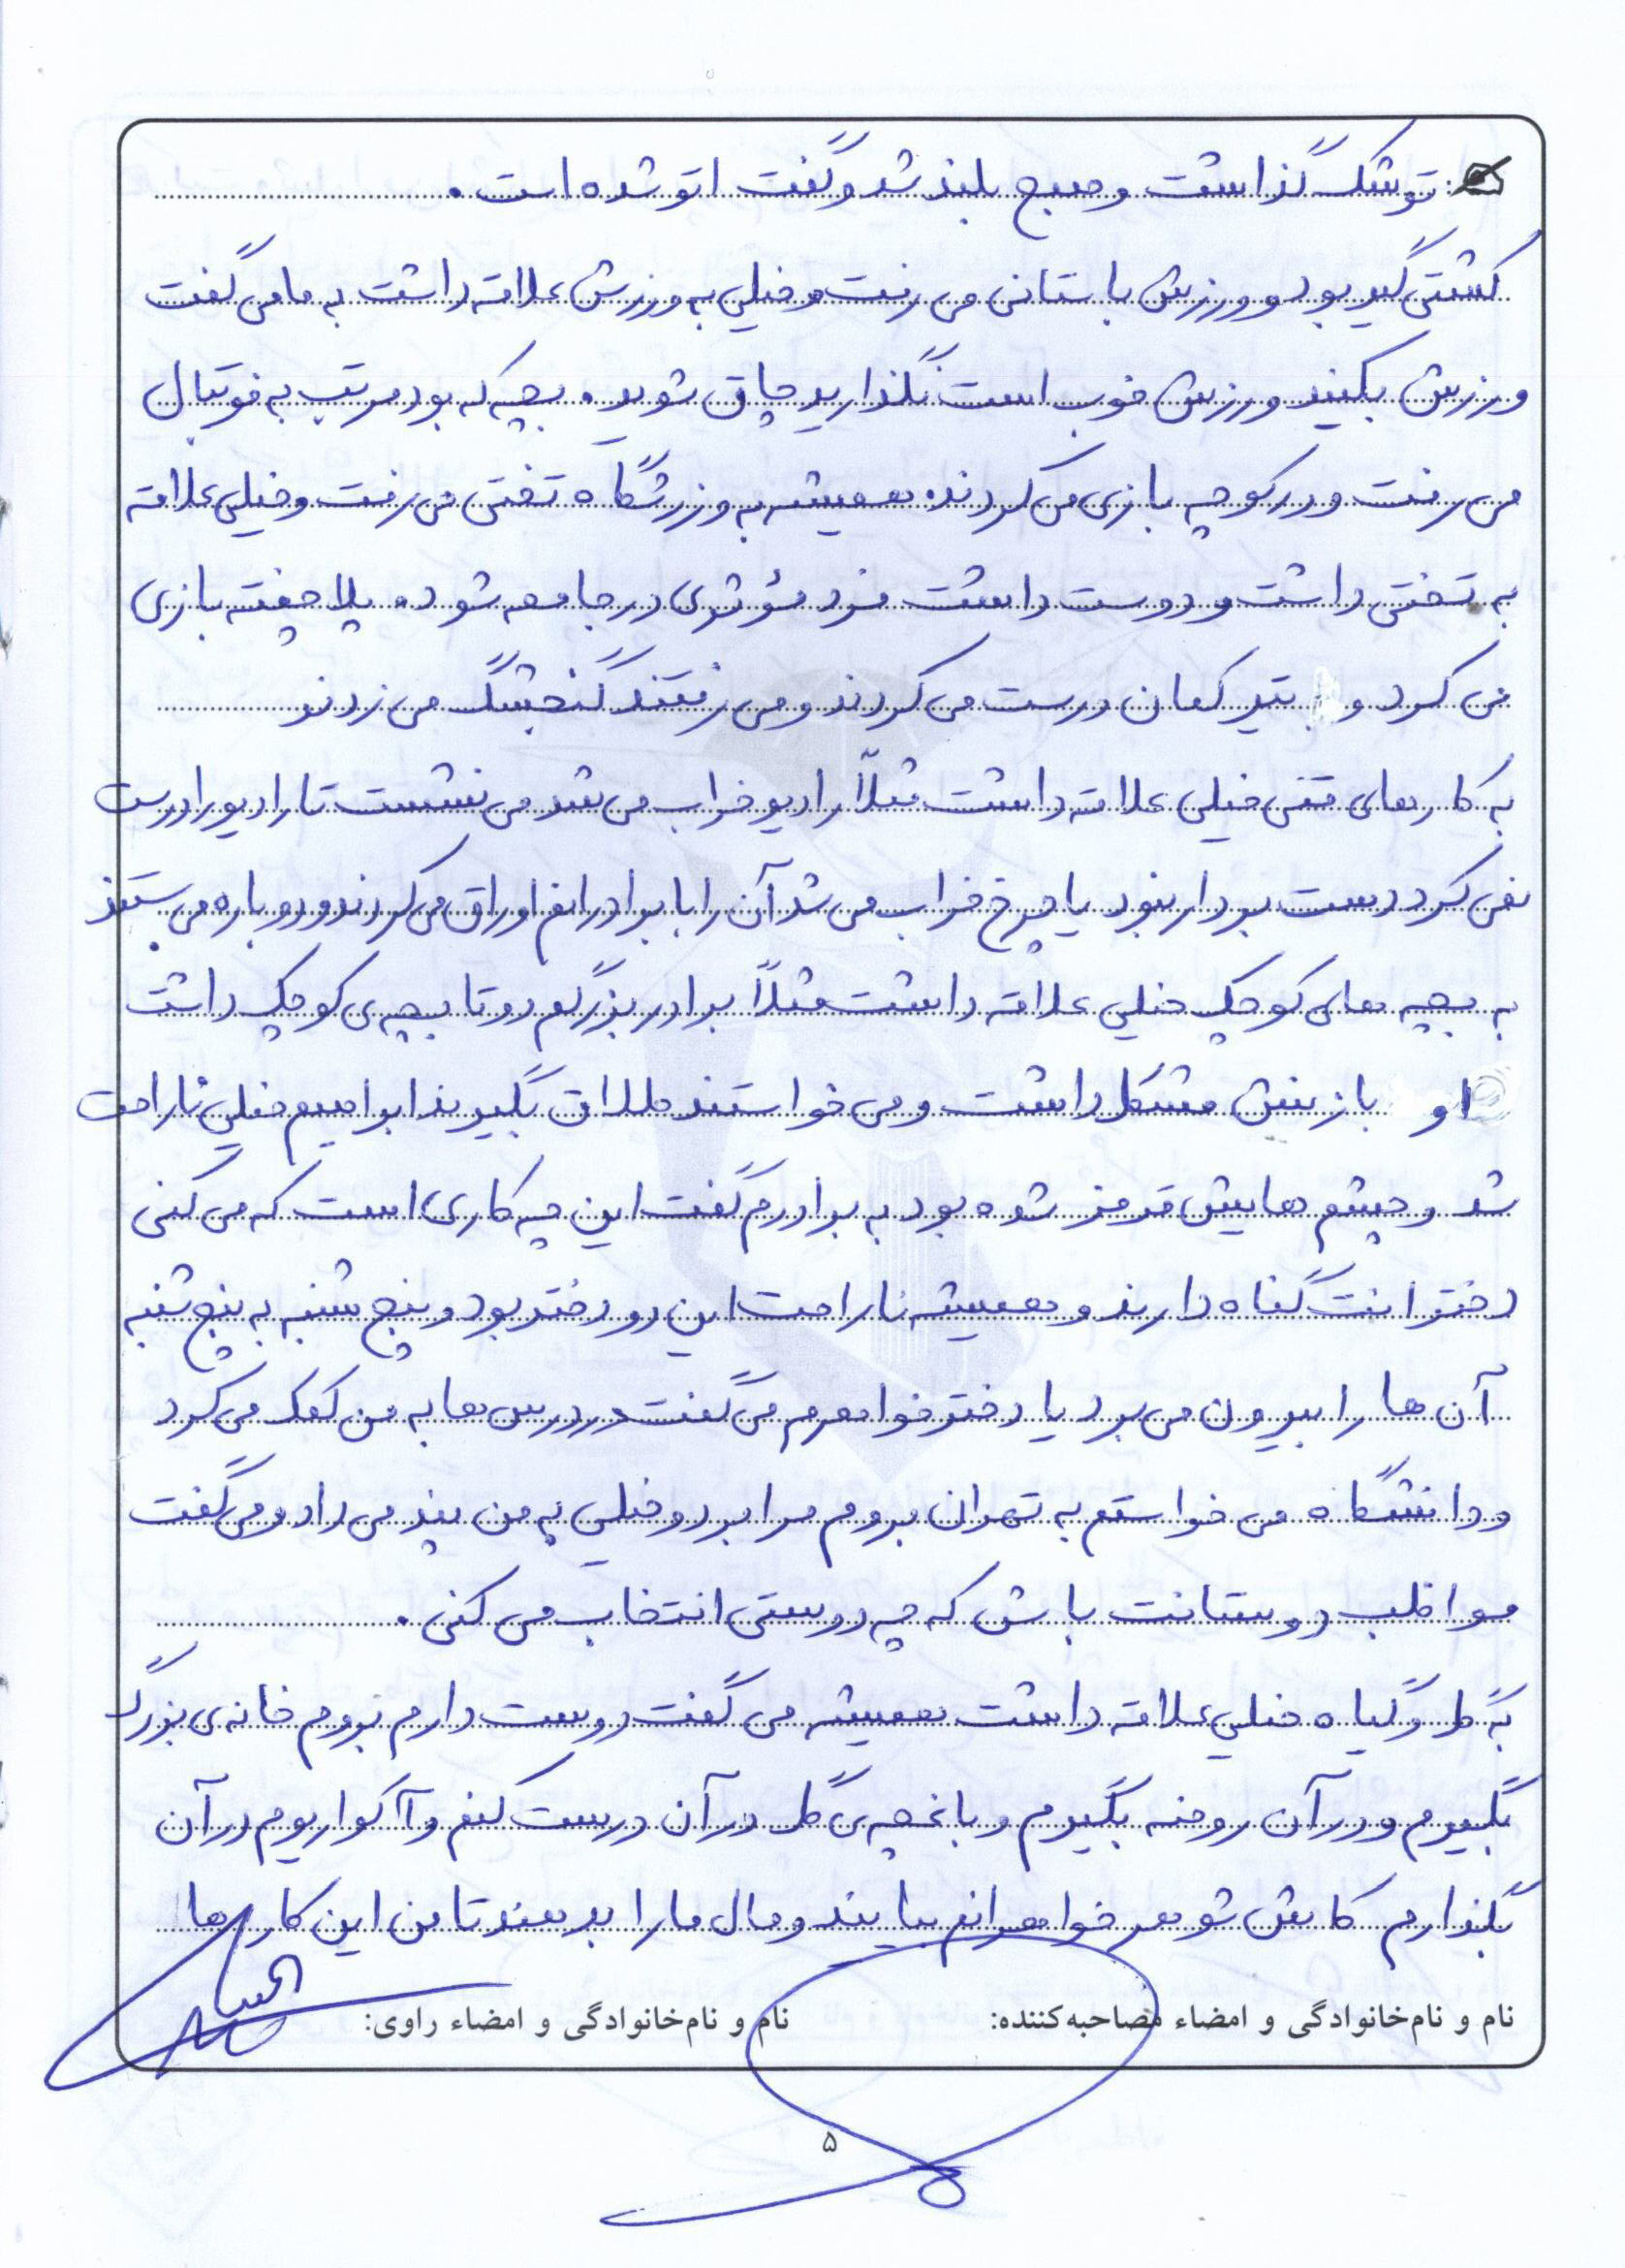 توشک گذاشت و صبح بلند شد و گفت اتو شده است.
کشتی گیر بود و ورزش باستانی می رفت و خیلی به ورزش علاقه داشت به ما می گفت
ورزش بکنید ورزش خوب است نگذارید چاق شوید. بچه که بود مرتب به فوتبال
می رفت و در کوچه بازی می کردند همیشه به ورزشگاه تختی می رفت و خیلی علاقه
به تختی داشت و دوست داشت فرد مؤثری در جامعه شود. پلا چفته بازی
می کرد و تیر کمان درست می کردند و می رفتند گنجشگ می زدند
به کارهای فنی خیلی علاقه داشت مثلاً رادیو خراب می شد می نشست تا رادیو را درست
نمی کرد دست بردار نبود یا چرخ خراب می شد آن را با برادرانم اوراق می کردند و دوباره می بستند
به بچه های کوچک خیلی علاقه داشت مثلاً برادر بزرگم دو تا بچه ی کوچک داشت
او با زنش مشکل داشت و می خواستند طلاق بگیرند ابراهیم خیلی ناراحت
شد و چشم هایش قرمز شده بود به برادرم گفت این چه کاری است که می کنی
دخترانت گناه دارند و همیشه ناراحت این دو دختر بود و پنج شنبه به پنج شنبه
آن ها را بیرون می برد یا دختر خواهرم می گفت در درس ها به من کمک می کرد
و دانشگاه می خواستم به تهران بروم مرا برد و خیلی به من پند می داد و می گفت
مواظب دوستانت باش که چه دوستی انتخاب می کنی.
به گل و گیاه خیلی علاقه داشت همیشه می گفت دوست دارم بروم خانه ی بزرگ
بگیرم و در آن روضه بگیرم و باغچه ی گل در آن درست کنم و آکواریوم در آن
بگذارم کاش شوهر خواهرانم بیایند و مال ما را بدهند تا من این کارها
نام و نام‌خانوادگی و امضاء مصاحبه‌کننده: نام و نام‌خانوادگی و امضاء راوی:
۵